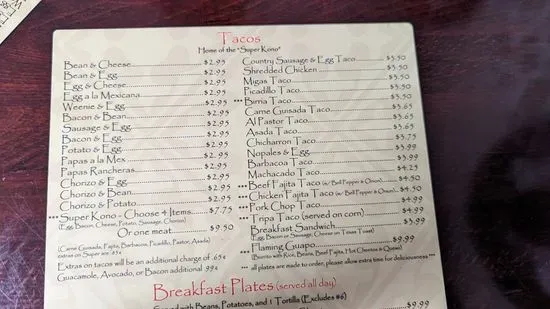 Tacos
Home of the "Super Kono"
Bean & Cheese $2.95
Bean & Egg $2.95
Egg & Cheese $2.95
Egg a la Mexicana $2.95
Weenie & Egg $2.95
Bacon & Bean $2.95
Sausage & Egg $2.95
Bacon & Egg $2.95
Potato & Egg $2.95
Papas a la Mex $2.95
Papas Rancheras $2.95
Chorizo & Egg $2.95
Chorizo & Bean $2.95
Chorizo & Potato $2.95
***Super Kono - Choose 4 Items $7.75
(Egg, Bacon, Cheese, Potato, Sausage, Chorizo)
Or one meat $9.50
(Carne Guisada, Fajita, Barbacoa, Picadillo, Pastor, Asada)
extras on Super are 85¢
Extras on tacos will be an additional charge of 65¢
Guacamole, Avocado, or Bacon additional 99¢
Country Sausage & Egg Taco $3.50
Shredded Chicken $3.50
Migas Taco $3.50
Picadillo Taco $3.50
***Birria Taco $3.50
Carne Guisada Taco $3.65
Al Pastor Taco $3.65
Asada Taco $3.65
Chicharron Taco $3.75
Nopales & Egg $3.99
Barbacoa Taco $3.99
Machacado Taco $4.25
***Beef Fajita Taco (w/ Bell Pepper & Onion) $4.50
***Chicken Fajita Taco (w/ Bell Pepper & Onion) $4.50
***Pork Chop Taco $4.99
***Tripa Taco (served on corn) $4.99
Breakfast Sandwich $3.99
(Egg, Bacon or Sausage, Cheese on Texas Toast)
***Flaming Guapo $9.99
(Burrito with Rice, Beans, Beef Fajita, Hot Cheetos & Queso)
*** all plates are made to order, please allow extra time for deliciousness ***
Breakfast Plates (served all day)
Served with Beans, Potatoes, and 1 Tortilla (Excludes #6)
$9.99